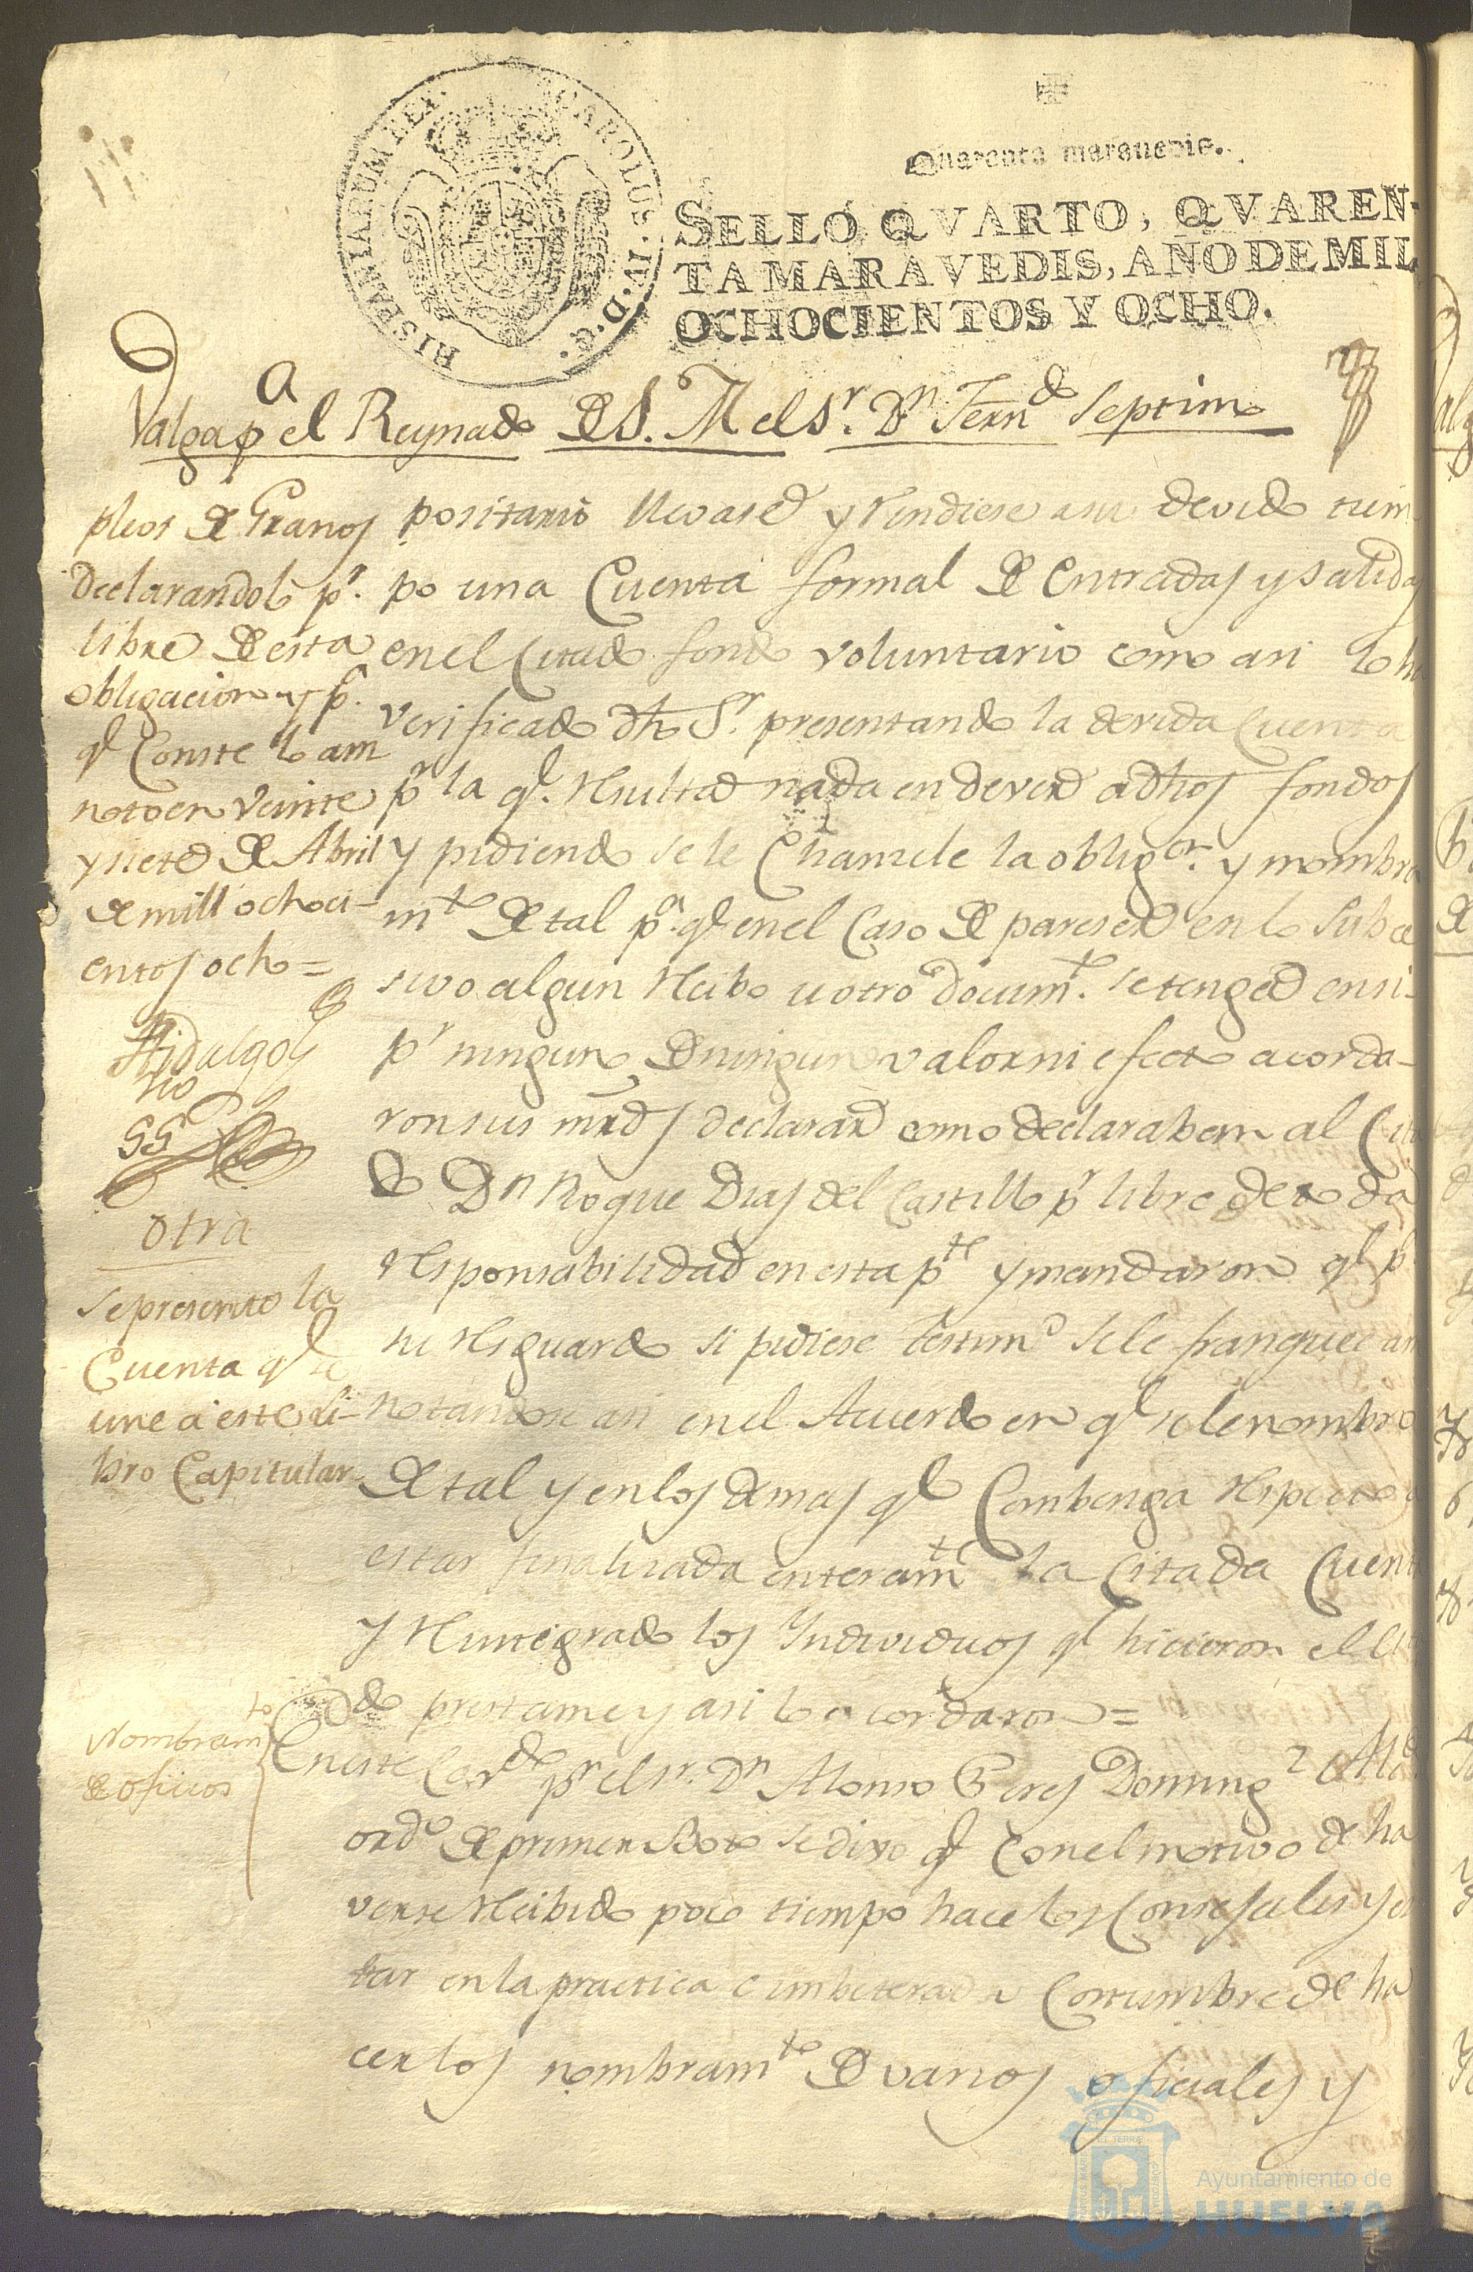 HISPANIARUM REX.
CAROLUS. IV. D. G.
Quarenta maravedis.
SELLO QVARTO, QVAREN-
TA MARAVEDIS, AÑO DE MIL
OCHOCIENTOS Y OCHO.
Valga pa el Reynado de S. M el Sr. Dn Ferndo Septimo
pleos de Granos
declarandolo pr.
libre de esta
obligacion y pa.
qe Conste lo an
noto en Veinte
y siete de Abril
de mill ochoci-
entos ocho =
Hidalgo
SSo
Otra
Se presento la
Cuenta qe se
une a este Li-
bro Capitular
Nombramto
de oficios
positario llevase y rindiese a su devido tiem
po una Cuenta formal de Entradas y Salidas
en el Citado fondo voluntario como asi lo ha
verificado dho Sr. presentando la devida Cuenta
pr la qe. resulta nada en dever a dhos fondos
y pidiendo se le Chancele la obligon. y nombra
mto de tal pa. qe en el Caso de pareser en lo Subce
sivo algun recibo u otro documto. se tenga en si
pr ninguno de ningun valor ni efecto acorda-
ron sus mrds declarar como declaraban al Cita
do Dn Roque Dias del Castillo pr libre de toda
responsabilidad en esta pte y mandaron qe pa
su resguardo si pidiese testimo se le franquee an
notandose asi en el Acuerdo en qe se le nombro
de tal y en los demas qe Combenga respecto a
estar finalizada enteramte la Citada Cuenta
y reintegrado los Yndividuos qe hicieron el Cita
do prestame y asi lo acordaron =
En este Cavdo pr el sr. Dn Alonso Peres Domingz Alcde
ordo de primer Boto se dixo qe Con el motivo de ha
verse recibido poco tiempo hace los Consejales y es
tar en la practica e imbeterada Costumbre de ha
cer los nombramto de varios oficiales y
Ayuntamiento de
HUELVA